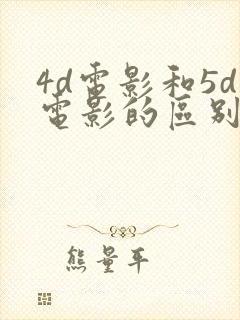 4d電影和5d
電影的區別
熊量平